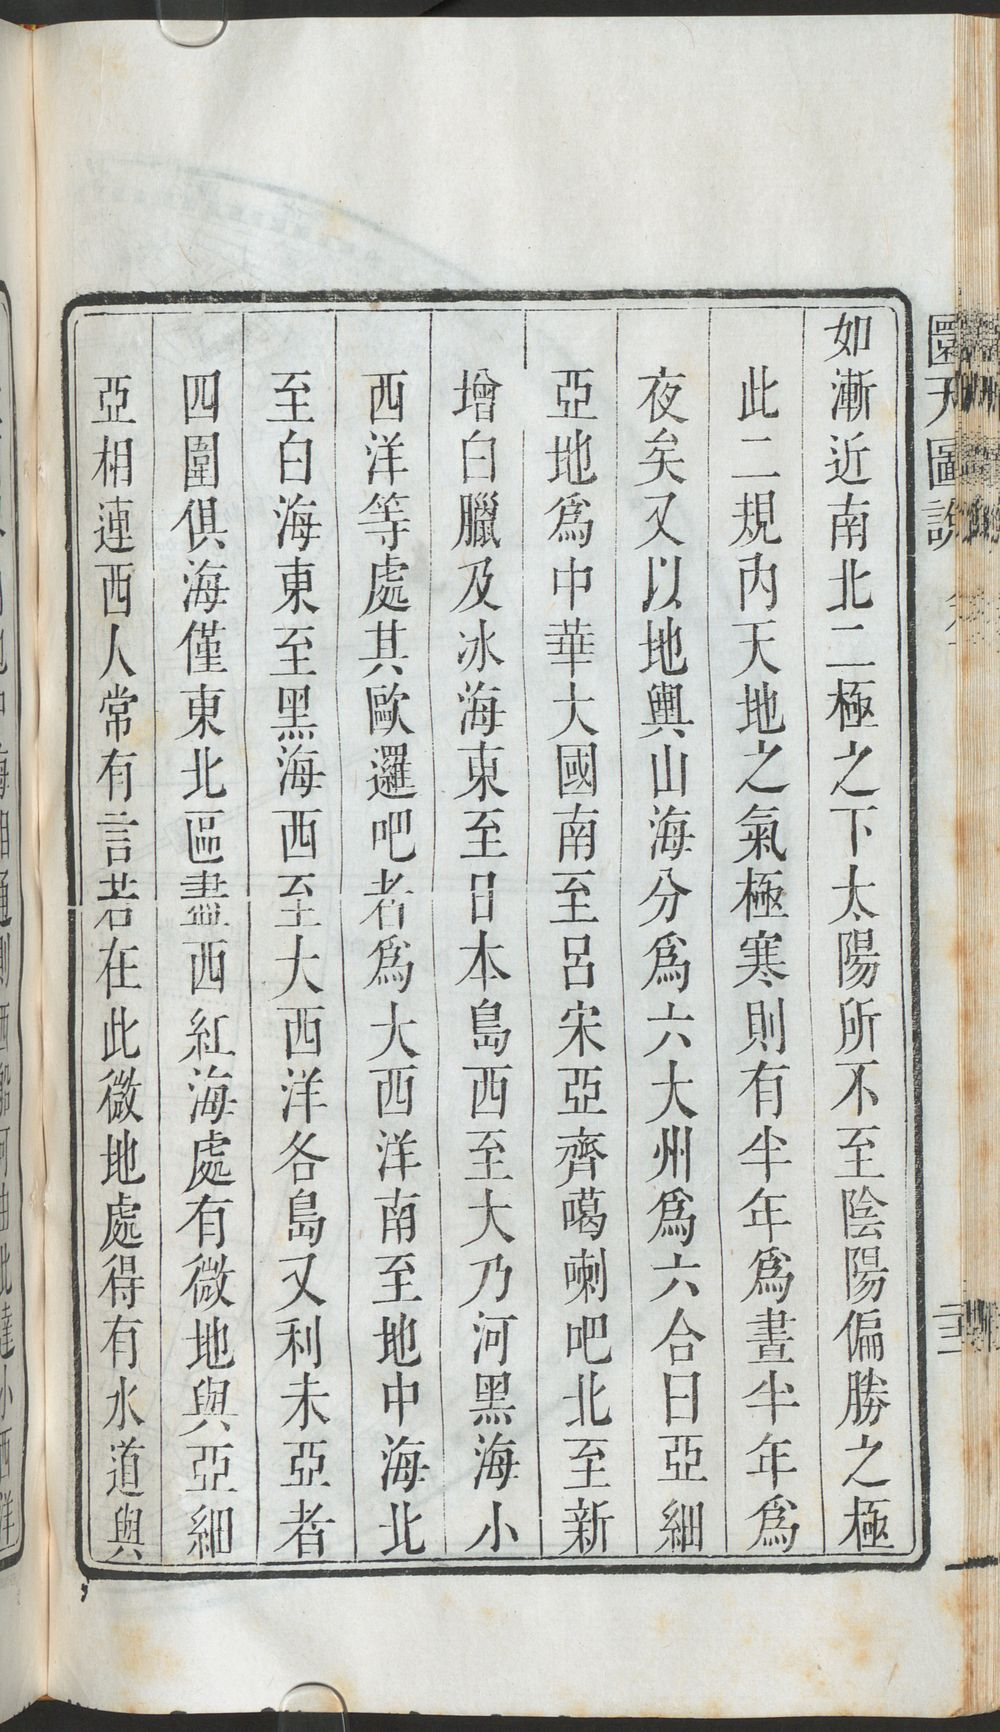 圜天圖說
如漸近南北二極之下太陽所不至陰陽偏勝之極
此二規內天地之氣極寒則有半年爲晝半年爲
夜矣又以地輿山海分爲六大州爲六合曰亞細
亞地爲中華大國南至呂宋亞齊噶喇吧北至新
增白臘及冰海東至日本島西至大乃河黑海小
西洋等處其歐邏吧者爲大西洋南至地中海北
至白海東至黑海西至大西洋各島又利未亞者
四圍俱海僅東北區盡西紅海處有微地與亞細
亞相連西人常有言若在此微地處得有水道與